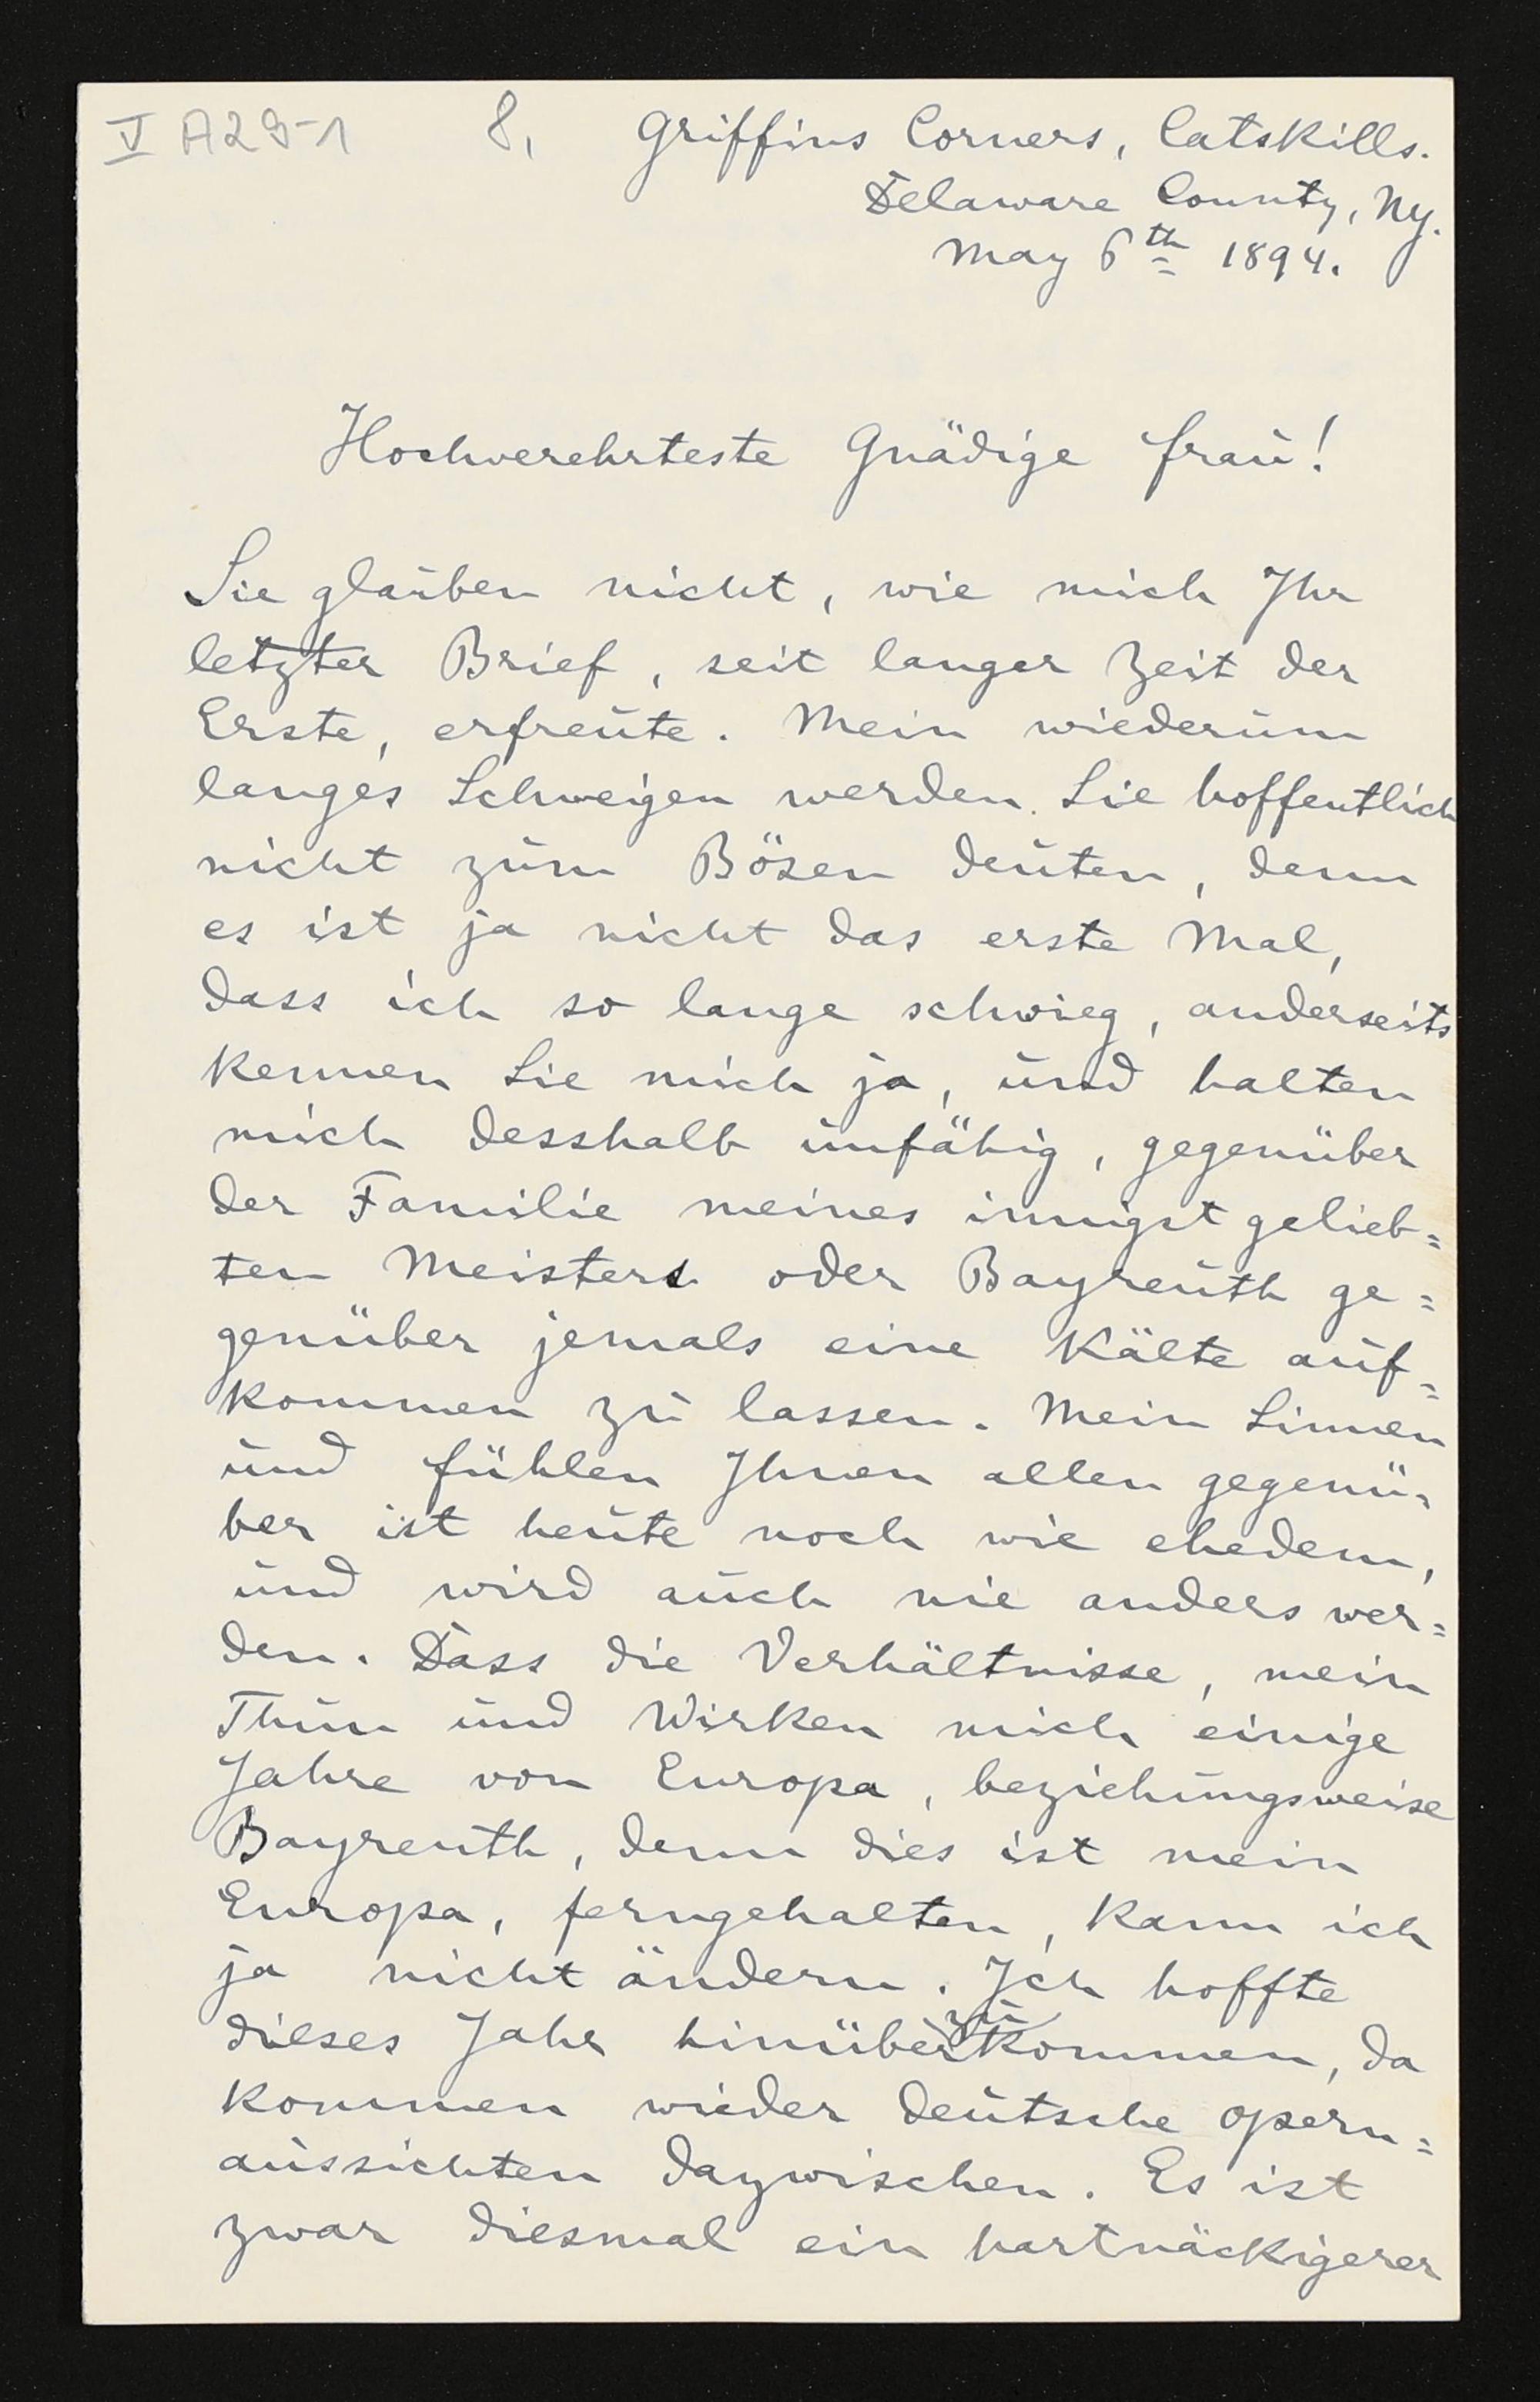 V A29-1 8, Griffins Corners, Catskills.
Delaware County, Ny.
May 6th 1894.
Hochverehrteste Gnädige Frau!
Sie glauben nicht, wie mich Ihr
letzter Brief, seit langer Zeit der
Erste, erfreute. Mein wiederum
langes Schweigen werden Sie hoffentlich
nicht zum Bösen deuten, denn
es ist ja nicht das erste Mal,
dass ich so lange schwieg, anderseits
kennen Sie mich ja, und halten
mich desshalb unfähig, gegenüber
der Familie meines innigst gelieb=
ten Meisters oder Bayreuth ge=
genüber jemals eine Kälte auf=
kommen zu lassen. Mein Sinnen
und fühlen Ihnen allen gegenü=
ber ist heute noch wie ehedem,
und wird auch nie anders wer=
den. Dass die Verhältnisse, mein
Thun und Wirken mich einige
Jahre von Europa, beziehungsweise
Bayreuth, denn dies ist mein
Europa, ferngehalten, kann ich
ja nicht ändern. Ich hoffte
dieses Jahr hinüberzukommen, da
kommen wieder deutsche opern=
aussichten dazwischen. Es ist
zwar diesmal ein hartnäckigerer